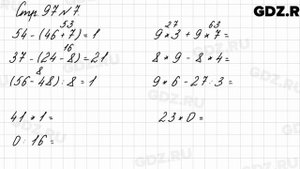 Стр. 97 № 7.
GDZ.R
53
54 - (46 + 7) = 1
16
37 - (24 - 8) = 21
8
(56 - 48) : 8 = 1
41 * 1 =
0 : 16 =
27 63
9 * 3 + 9 * 7 =
8 * 9 - 8 * 4 =
9 * 6 - 27 : 3 =
23 * 0 =